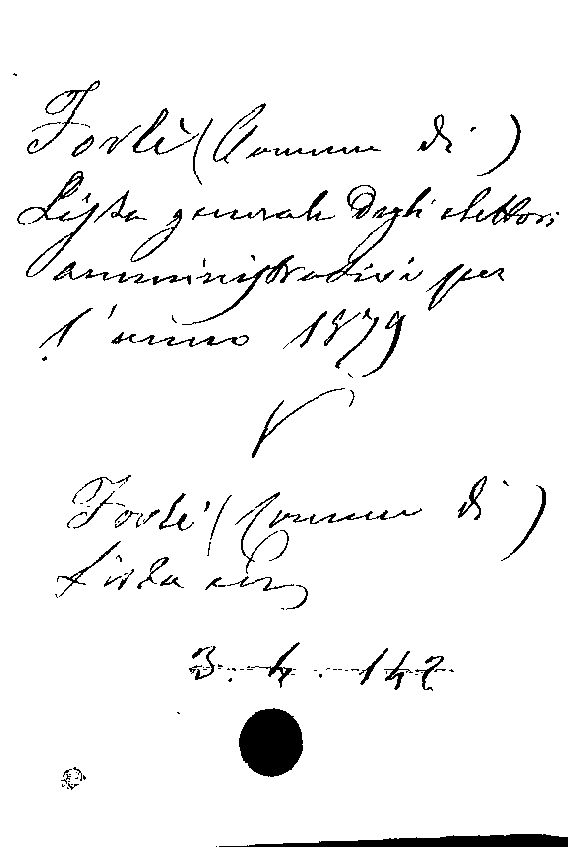 Forlì (Comune di)
Lista generale degli elettori
amministrativi per
l'anno 1879
V
Forlì (Comune di)
Lista ecc
3. 4. 142